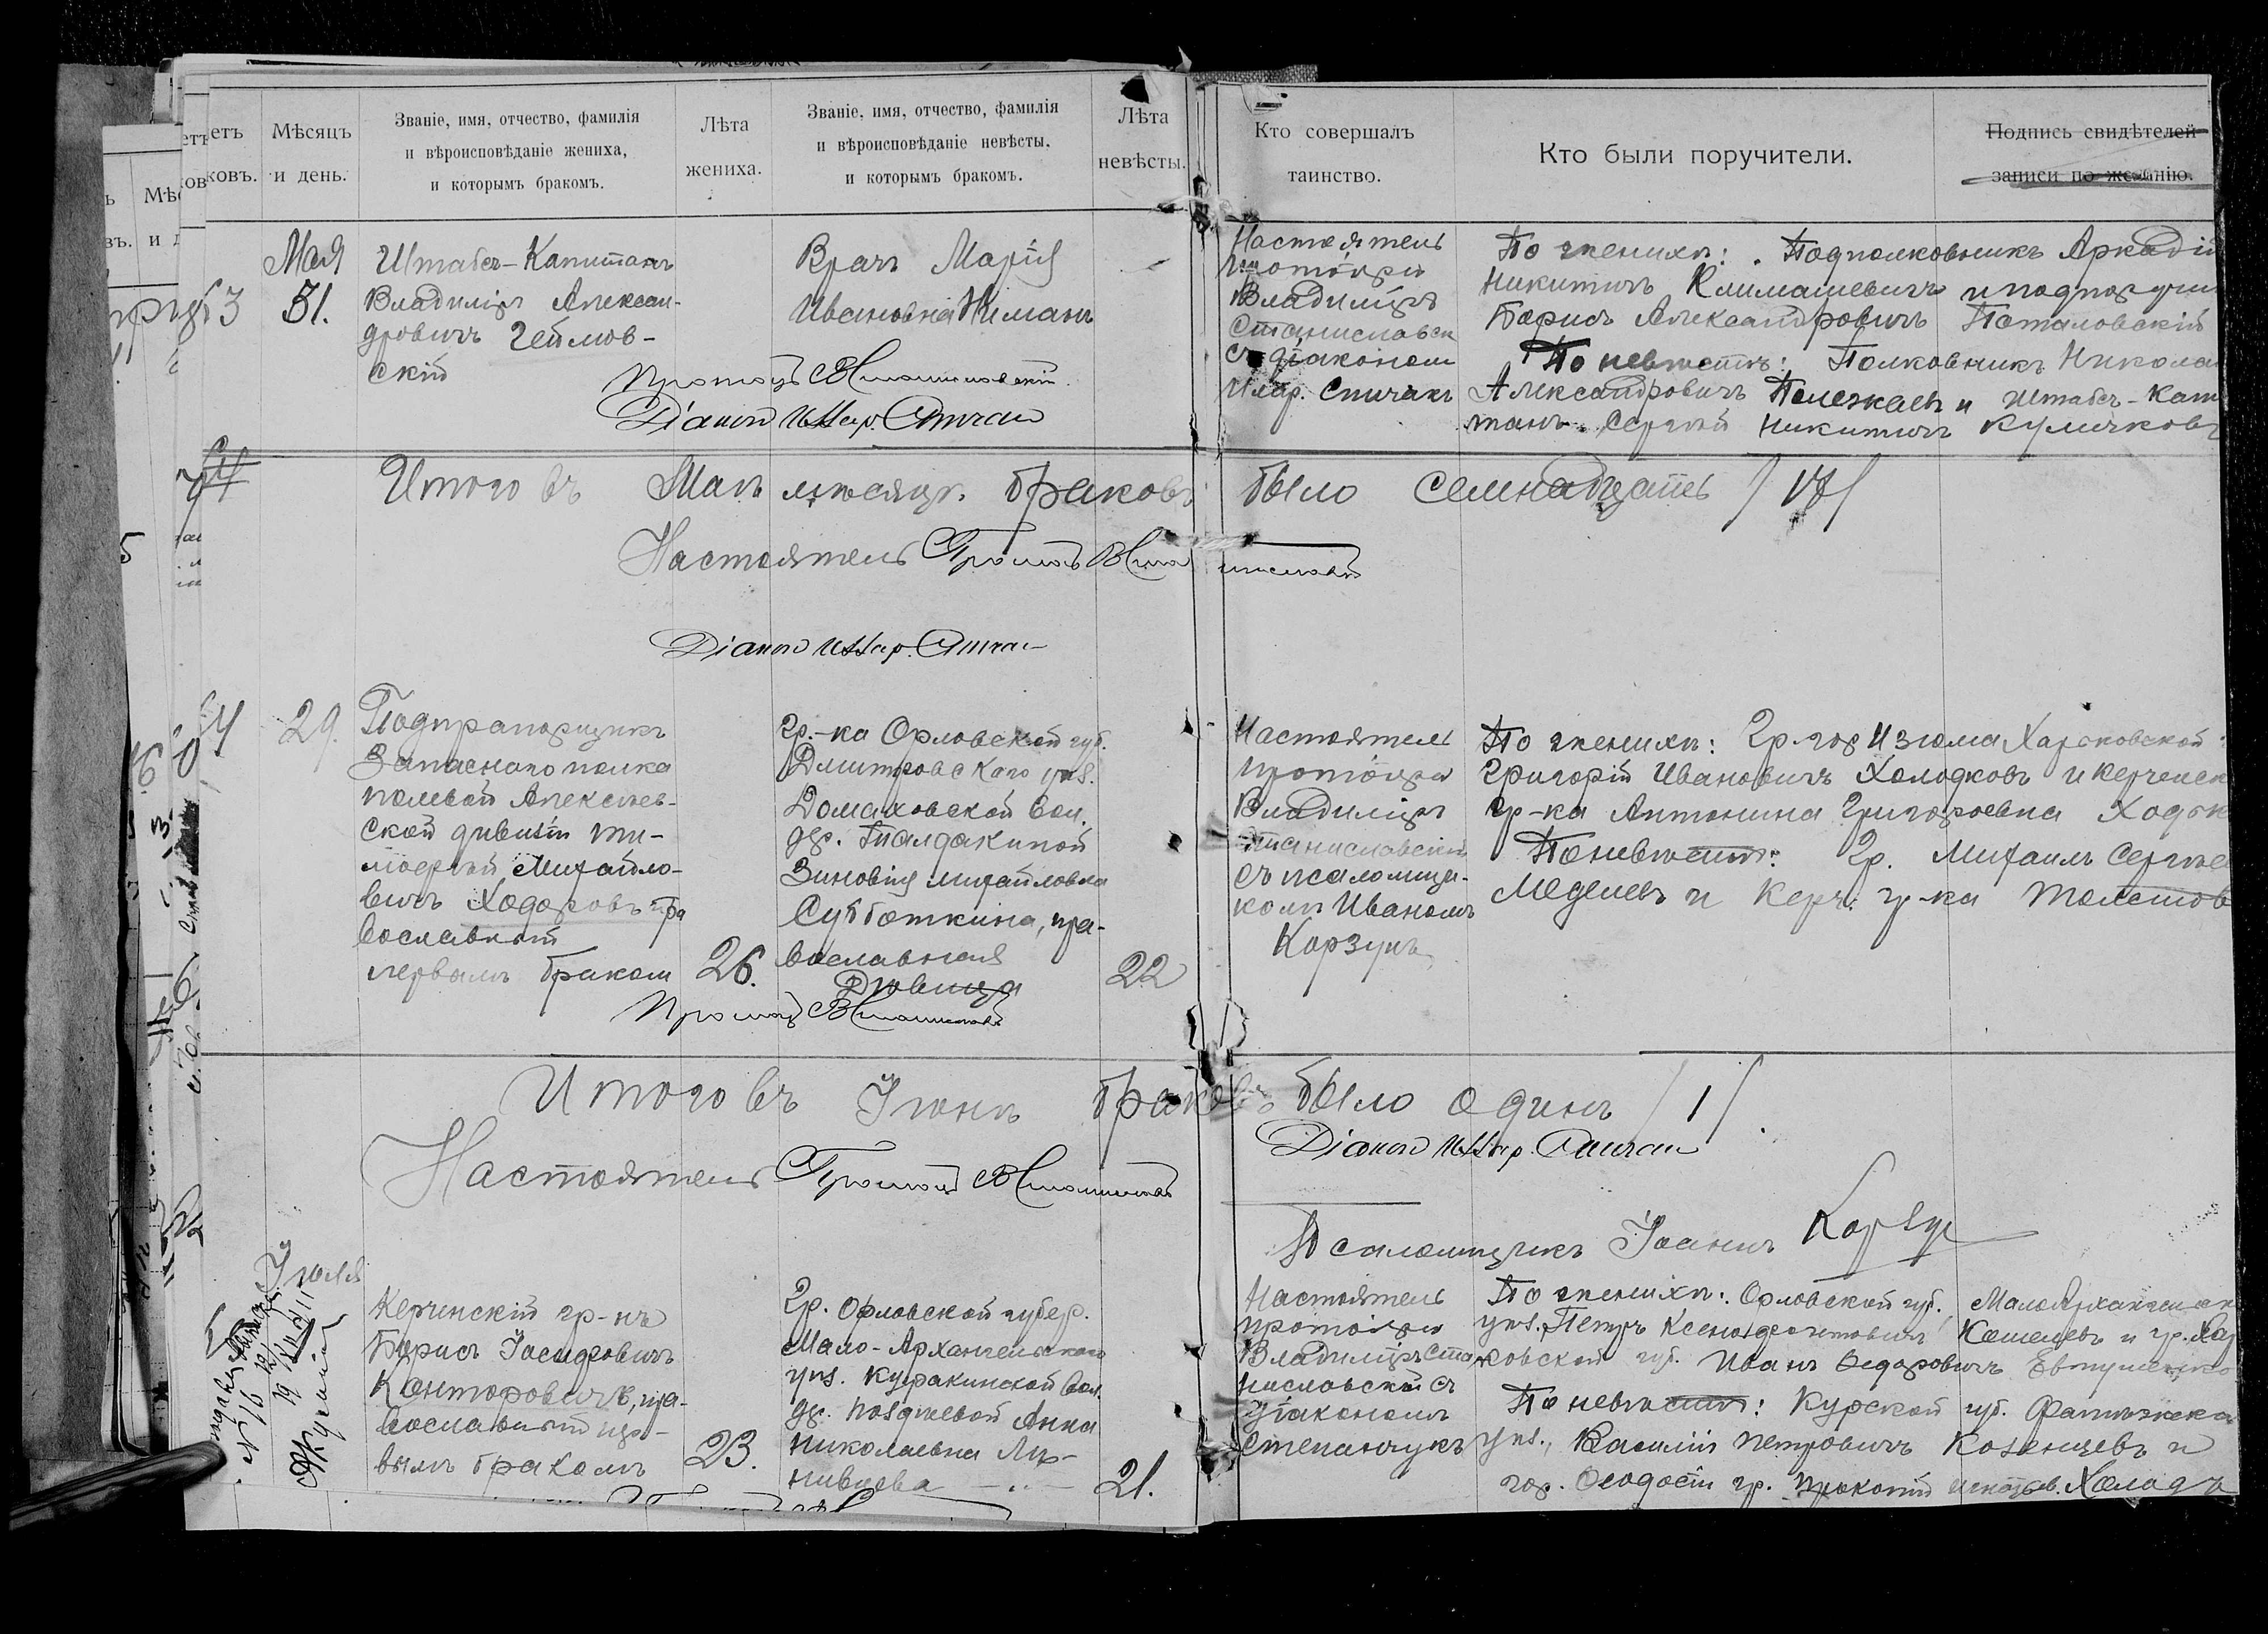 Мѣсяцъ
и день.
Званіе, имя, отчество, фамилія
и вѣроисповѣданіе жениха,
и которымъ бракомъ.
Лѣта
жениха.
Званіе, имя, отчество, фамилія
и вѣроисповѣданіе невѣсты,
и которымъ бракомъ.
Лѣта
невѣсты.
Кто совершалъ
таинство.
Кто были поручители.
Подпись свидѣтелей
записи по желанію.
3
Мая
31.
Штабсъ-Капитанъ
Владиміръ Алексан-
дровичъ
скій
Врачъ Марія
Ивановна Ниманъ
Настоятель
протоіерей
Владиміръ
Станиславск
съ діакономъ
Илар. Спичакъ
По женихѣ: Подполковникъ Аркадій
Никитичъ Климашевичъ и
Борисъ Александровичъ Потаповскій
По невѣстѣ: Полковникъ Никола
Александровичъ Полежаевъ и Штабсъ-Капи
танъ Сергѣй Никитичъ
Діакон Илар. Спичак
Итого въ Маѣ мѣсяцѣ браковъ было семнадцать /17/
Настоятель Протоіер В Станиславск
Діакон Илар. Спичак
4
29.
Подпрапорщикъ
Запаснаго полка
полевой Алексѣев-
ской дивизіи Ти-
моѳей Михайло-
вичъ Ходоровъ пра
вославный
первымъ бракомъ
26.
Гр-ка Орловской губ.
Дмитровскаго уѣз.
Домаховской вол.
дер. Талдакиной
Зиновія Михайловна
Субботкина, пра-
вославная
Дѣвица
22
Настоятель
протоіерей
Владиміръ
Станиславскій
съ псаломщи-
комъ Иваномъ
Корзунъ
По женихѣ: Гр. гор Изюма Харьковской
Григорій Ивановичъ Холодковъ и керченск
гр-ка Антонина Григорьевна
По невѣстѣ: Гр. Михаилъ Сергѣе
и Керч. гр-ка
Итого въ Іюнѣ браковъ было одинъ /1/.
Діакон Илар. Спичак
Настоятель Протоіер В Станиславск
Псаломщикъ Іоаннъ Корзун
5
Іюля
Керченскій гр-нъ
Борисъ Іосифовичъ
Конторовичъ, пра-
вославный пер-
вымъ бракомъ
23.
Гр. Орловской губер.
Мало-Архангельскаго
уѣз. Куракинской вол.
дер. Поздѣевой Анна
Николаевна Лѣ-
нивцева
21.
Настоятель
протоіерей
Владиміръ Ста
ниславскій съ
діакономъ
Степанчукъ
По женихѣ: Орловской губ. Мало Архангельск
уѣз. Петръ Ксенофонтовичъ Кошелевъ и гр. Хар
ковской губ. Иванъ Ѳедоровичъ
По невѣстѣ: Курской губ. Фатежска
уѣз., Василій Петровичъ и
гор. Ѳеодосіи гр. Прокопій